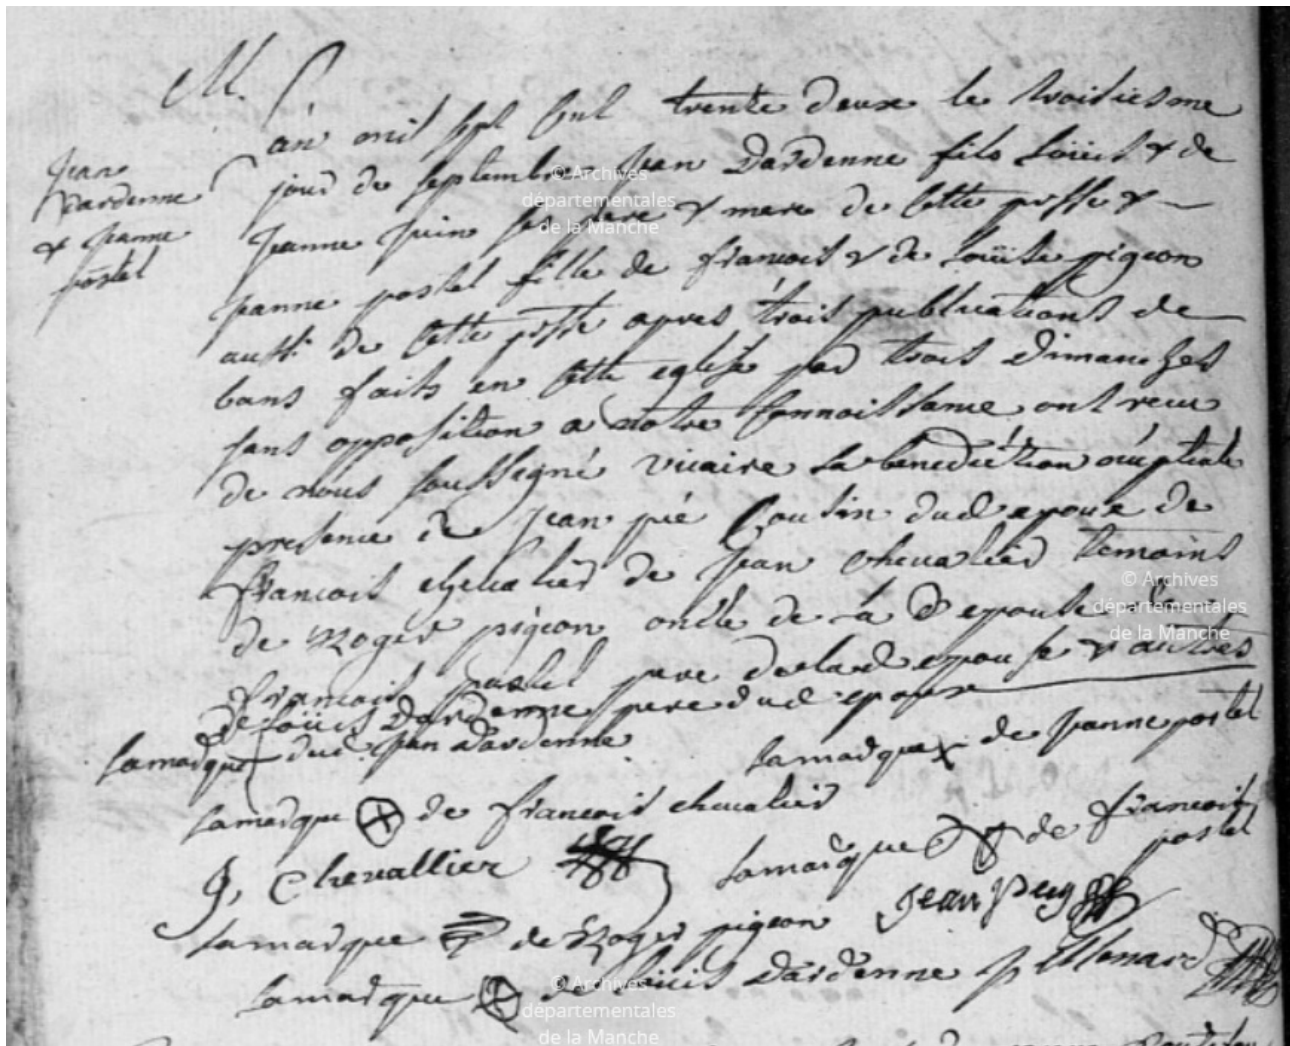 M.
Jean
Dardenne
& Jeanne
postel
L'an mil sept cent trente deux le troisiesme
jour de septembre Jean Dardenne fils Loüis & de
Jeanne juin ses pere & mere de cette psse &
Jeanne postel fille de francois & de Loüise pigeon
aussi de cette psse apres trois publications de
bans faits en cette eglise par trois dimanches
sans opposition a notre connoissance ont receu
de nous soussigné vicaire la benediction nuptiale
presence de Jean pié cousin dud epoux de
francois chevalier de Jean chevalier temoins
de Roger pigeon oncle de la d epouse de
francois postel pere de lad epouse & autres
de Loüis Dardenne pere dud epoux
la marque dud Jean Dardenne la marque x de Jeanne postel
la marque de francois chevalier
J, Chevallier la marque de francois
postel
la marque de Roger pigeon Jean
la marque de Loüis Dardenne
© Archives
départementales
de la Manche
© Archives
départementales
de la Manche
© Archives
départementales
de la Manche